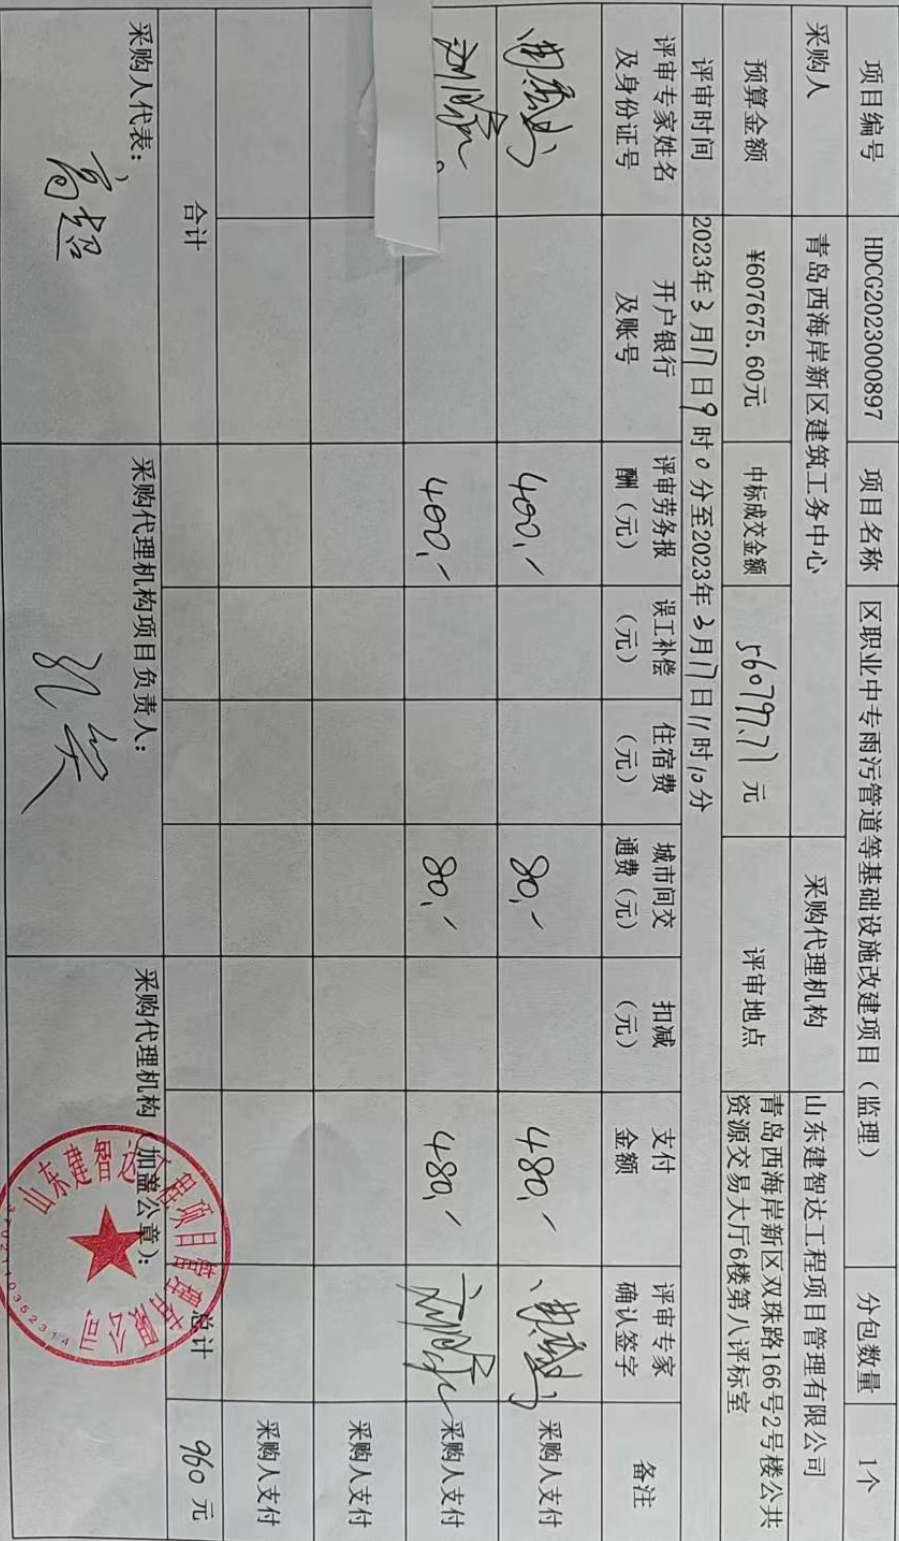 项目编号 HDCG2023000897 项目名称 区职业中专雨污管道等基础设施改建项目（监理） 分包数量 1个
采购人 青岛西海岸新区建筑工务中心 采购代理机构 山东建智达工程项目管理有限公司
预算金额 ¥607675.60元 中标成交金额 560797.71 元 评审地点 青岛西海岸新区双珠路166号2号楼公共
资源交易大厅6楼第八评标室
评审时间 2023年3月17日9时0分至2023年3月17日11时10分
评审专家姓名 开户银行 评审劳务报 误工补偿 住宿费 城市间交 扣减 支付 评审专家 备注
及身份证号 及账号 酬（元） （元） （元） 通费（元） （元） 金额 确认签字
400,- 80,- 480,- 采购人支付
400,- 80,- 480,- 采购人支付
采购人支付
采购人支付
合计 总计 960 元
采购人代表： 采购代理机构项目负责人： 采购代理机构（加盖公章）：
高超
山东建智达工程项目管理有限公司